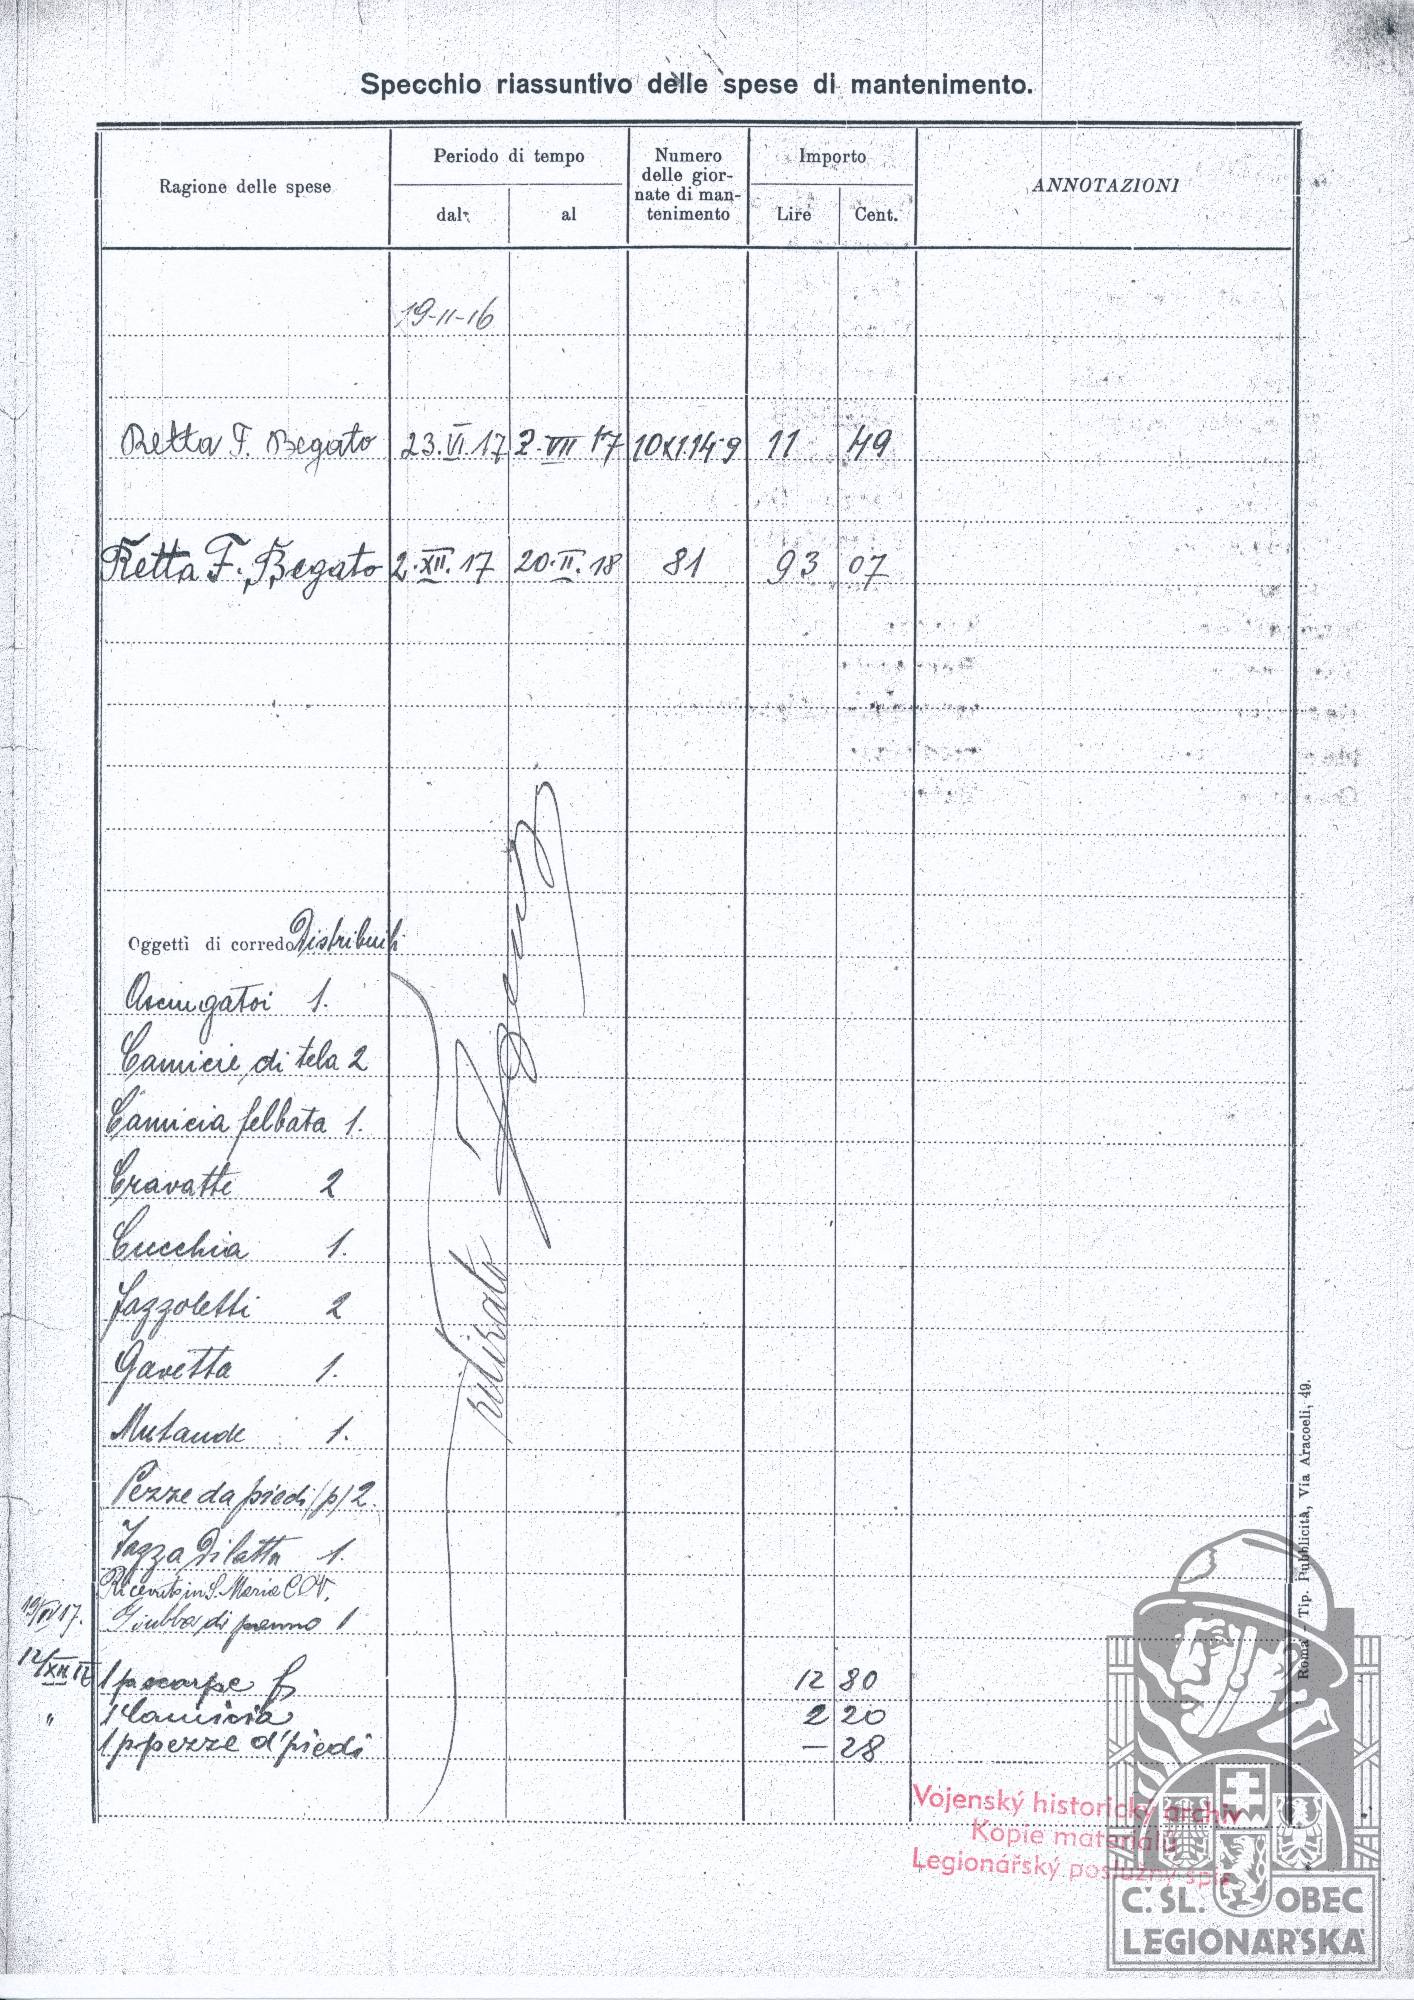 Specchio riassuntivo delle spese di mantenimento.
Ragione delle spese
Periodo di tempo
dal
al
Numero
delle gior-
nate di man-
tenimento
Importo
Lire
Cent.
ANNOTAZIONI
19-11-16
Retta F. Begato 23.VI.17 2.VII 17 10x1.14.9 11 49
Retta F. Begato 2.XII.17 20.II.18 81 93 07
Oggetti di corredo Distribuiti
Asciugatoi 1.
Camicie di tela 2
Camicia felbata 1.
Cravatte 2
Cucchia 1.
Fazzoletti 2
Gavetta 1.
Mutande 1.
Pezze da piedi (p) 2.
Tazza Di latta 1.
in S. Maria C.V.
Giubba di panno 1
12/XII 17 1 p scarpe 12 80
" 1 Camicia 2 20
1 p pezze d'piedi — 28
ritirato
Roma - Tip. Pubblicità, Via Aracoeli, 49.
Vojenský historický archiv
Kopie materiálů
Legionářský poslužný spis
Č. SL. OBEC
LEGIONÁŘSKÁ